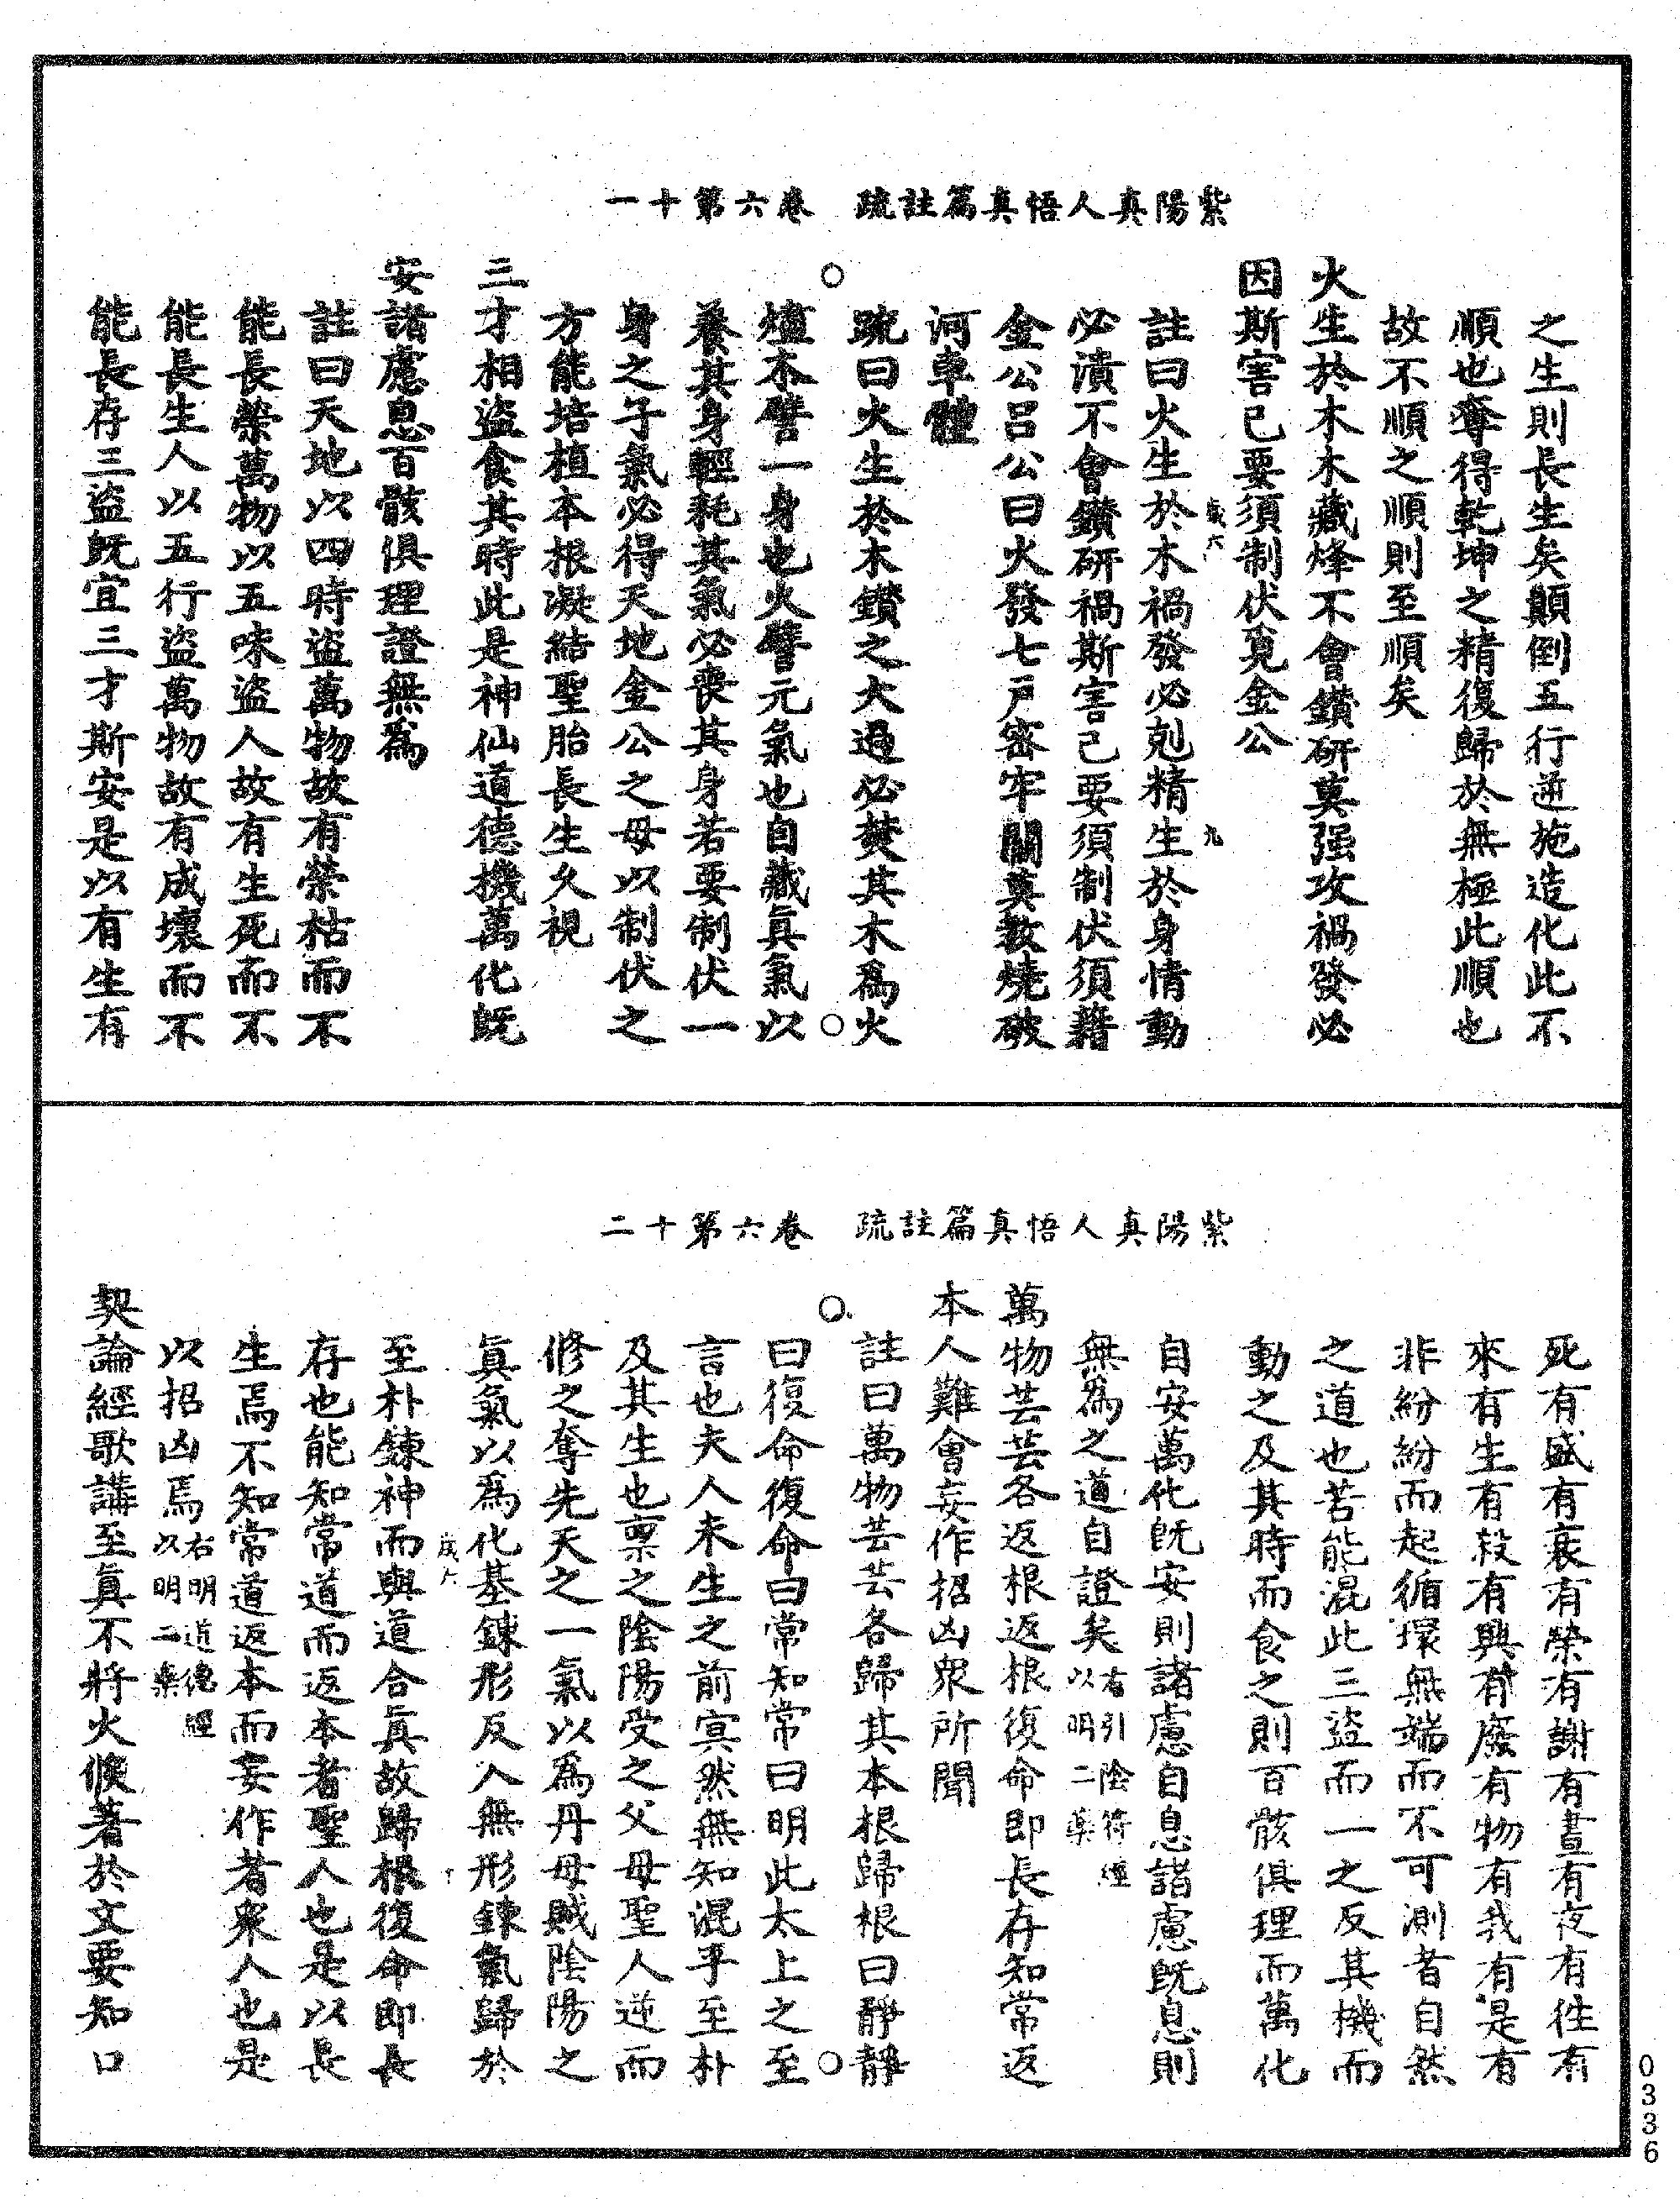 紫陽真人悟真篇註疏　卷六第十一
之生則長生矣顛倒五行逆施造化此不
順也奪得乾坤之精復歸於無極此順也
故不順之順則至順矣
火生於木木藏烽不會鑽研莫强攻禍發必
因斯害己要須制伏覓金公
歲六
九
註曰火生於木禍發必剋精生於身情動
必潰不會鑽研禍斯害己要須制伏須籍
金公呂公曰火發七戶密牢關莫教燒破
河車體
疏曰火生於木鑽之大過必焚其木爲火
爐木譬一身也火譬元氣也自藏眞氣以
養其身輕耗其氣必喪其身若要制伏一
身之子氣必得天地金公之母以制伏之
方能培植本根凝結聖胎長生久視
三才相盜食其時此是神仙道德機萬化旣
安諸慮息百骸俱理證無爲
註曰天地以四時盜萬物故有榮枯而不
能長榮萬物以五味盜人故有生死而不
能長生人以五行盜萬物故有成壞而不
能長存三盜旣宜三才斯安是以有生有
紫陽真人悟真篇註疏　卷六第十二
死有盛有衰有榮有謝有晝有夜有往有
來有生有殺有興有廢有物有我有是有
非紛紛而起循環無端而不可測者自然
之道也苦能混此三盜而一之反其機而
動之及其時而食之則百骸俱理而萬化
自安萬化旣安則諸慮自息諸慮旣息則
無爲之道自證矣右引陰符經以明二藥
萬物芸芸各返根返根復命即長存知常返
本人難會妄作招凶衆所聞
註曰萬物芸芸各歸其本根歸根曰靜靜
曰復命復命曰常知常曰明此太上之至
言也夫人未生之前冥然無知混乎至朴
及其生也禀之陰陽受之父母聖人逆而
修之奪先天之一氣以爲丹母賊陰陽之
眞氣以爲化基鍊形反入無形鍊氣歸於
歲六
十
至朴鍊神而與道合眞故歸根復命即長
存也能知常道而返本者聖人也是以長
生焉不知常道返本而妄作者衆人也是
以招凶焉右明道德經以明二藥
契論經歌講至眞不將火候著於文要知口
0336